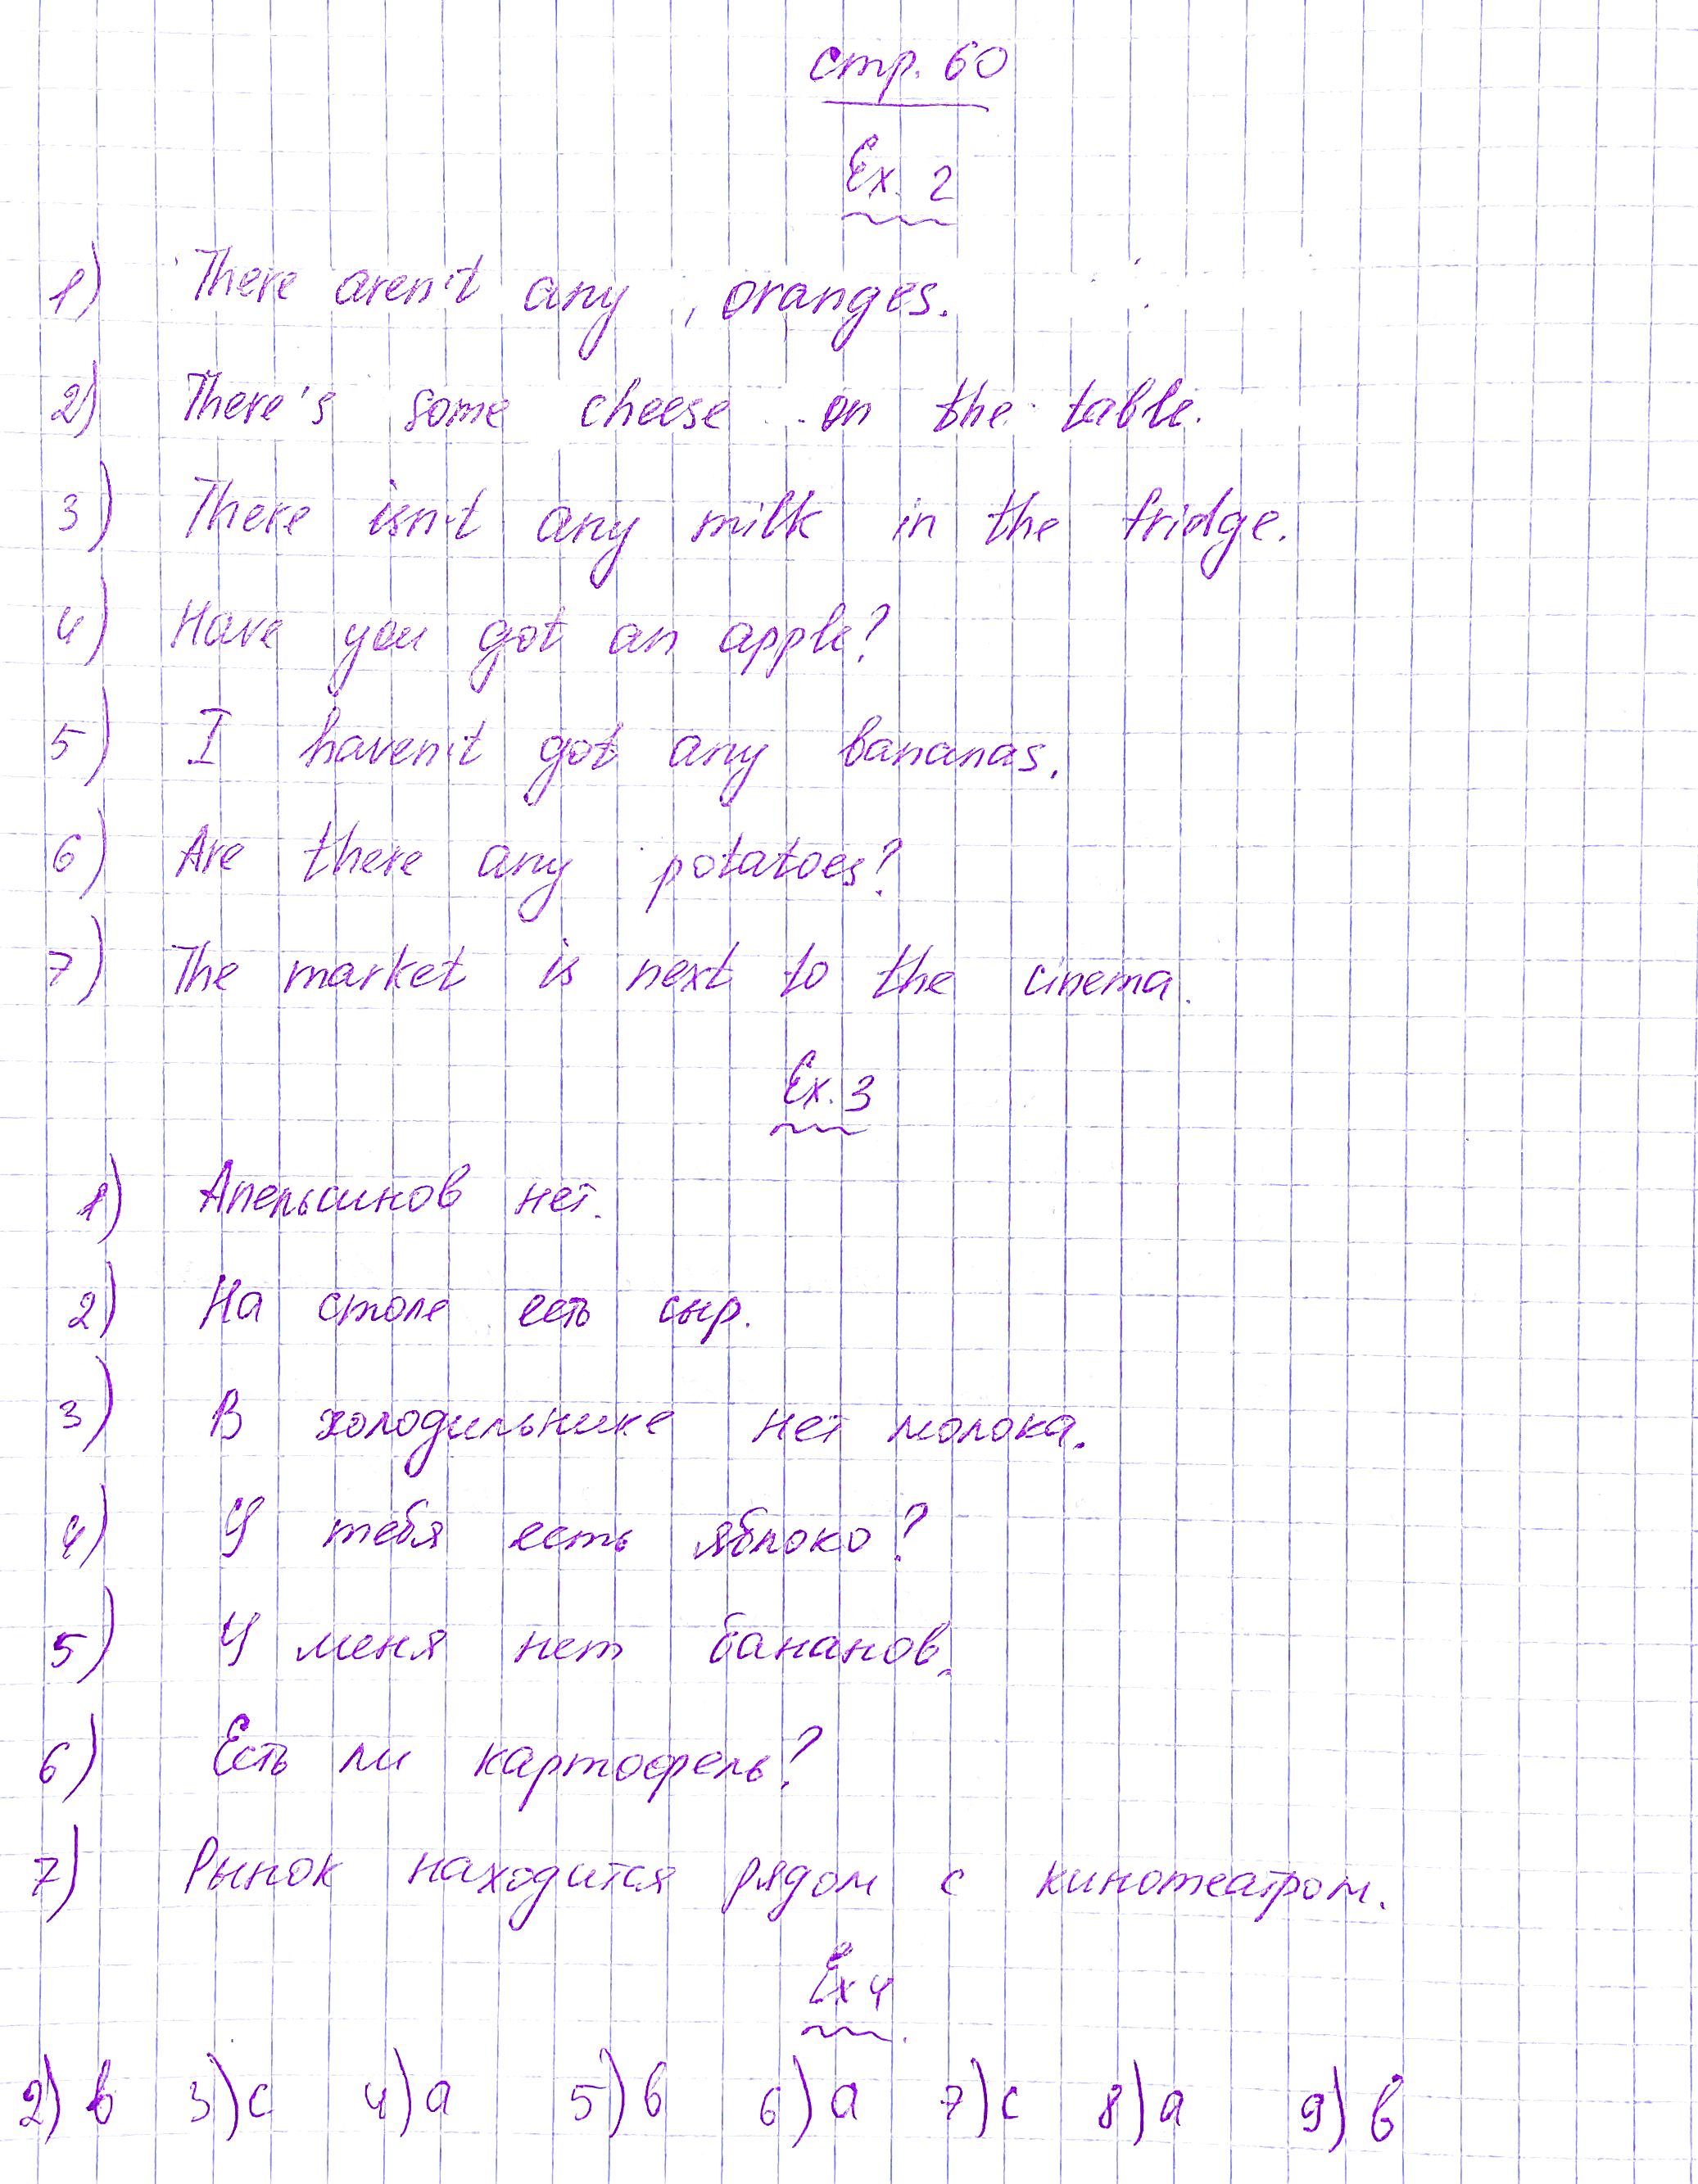 стр. 60
Ex. 2
1) There aren't any, oranges.
2) There's some cheese on the table.
3) There isn't any milk in the fridge.
4) Have you got an apple?
5) I haven't got any bananas.
6) Are there any potatoes?
7) The market is next to the cinema.
Ex. 3
1) Апельсинов нет.
2) На столе есть сыр.
3) В холодильнике нет молока.
4) У тебя есть яблоко?
5) У меня нет бананов.
6) Есть ли картофель?
7) Рынок находится рядом с кинотеатром.
Ex 4
2) b 3) c 4) a 5) b 6) a 7) c 8) a 9) b